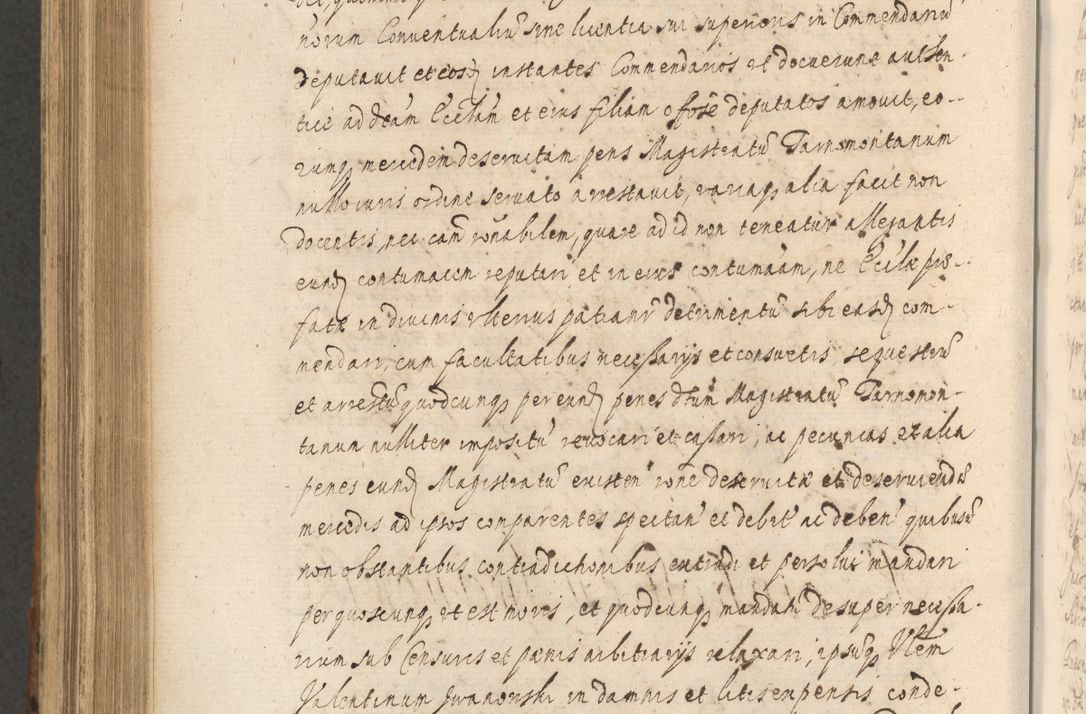 norum Conventualiũ sine licentia sui superioris in Commendariũ
deputavit et eosd instantes Commendarios ut docuerunt authen-
tice ad dctam Ecclam et eius filiam deputatos amovit, eo-
rumq mercedem deservitam penes Magistratũ Tarnomontanum
nullo iuris ordine servato arrestavit, variaq alia facit non
docentis, nec cam rõnabilem, quare ad id non teneatur allegantis
eund contumacem reputari et in eius contumaam, ne Ecclæ præ-
fatæ in divinis ulterius patianr detrimentũ sibi easd com-
mendari, cum facultatibus necessarijs et consuetis, sequestrũ
et arrestũ quodcunq per eund penes dctum Magistratũ Tarnomon-
tanum nulliter impositũ revocari et cassari, ac pecunias et alia
penes eund Magistratũ existen rõne deservitæ et deserviendæ
mercedis ad ipsos comparentes spectan et debit ac deben quibusvis
non obstantibus contradictionibus extradi et persolvi mandari
per quoscunq ut est moris, et quodcunq mandatũ desuper necessa-
rium sub Censuris et pœnis arbitrarijs relaxari, ipsumq Vlem
Valentinum Iwanowski in damnis et litis expensis conde-